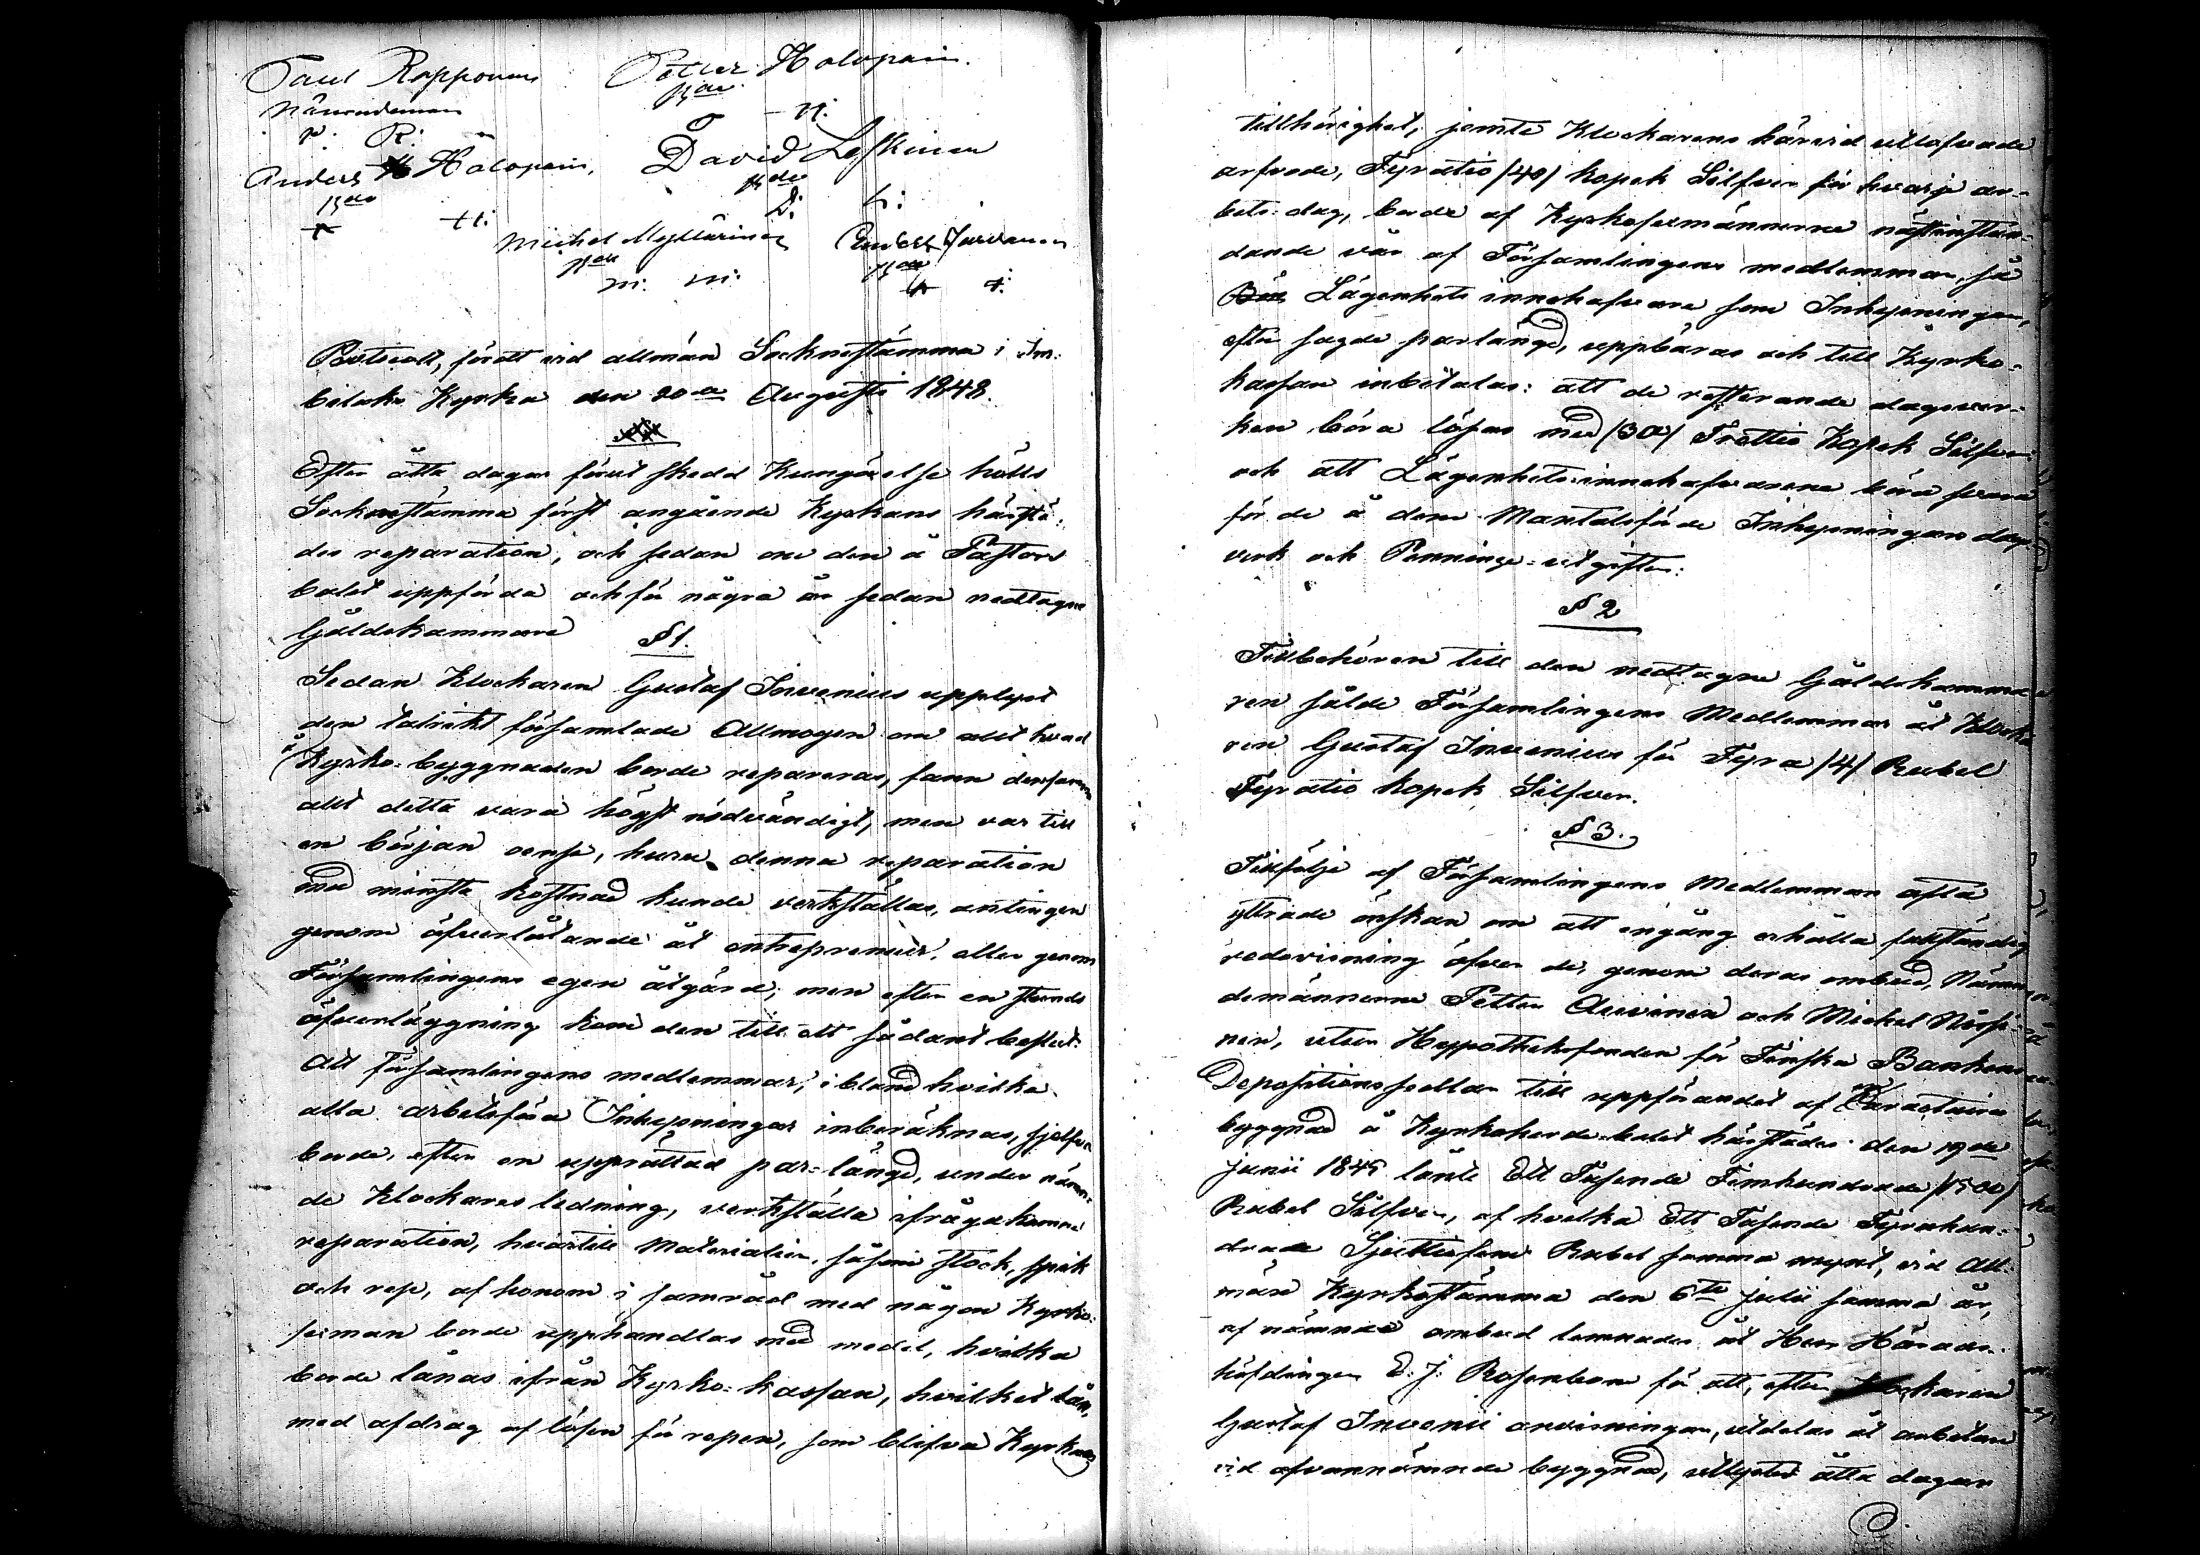 Paul Rapponen Petter Holopain.
Nämndeman Bde
P: R: P H:
Anders Holopain, David Leskinen
Bde Bde
A H: D: L:
Michel Myllärinen Anders Jurvanen
Bde Bde
M: M: A J:
Protocoll, fördt vid allmän Socknestämma i Im-
bilaks Kyrka den 20de Augusti 1848.
Efter åtta dagar förut skedd Kungörelse hölts
Socknestämma först angående Kyrkans härstä-
des reparation, och sedan om den å Pastors
bolet uppförda och för några år sedan nedtagne
Gäldekammare §1.
Sedan Klockaren Gustaf Invenius upplyst
den talrikt församlade Allmogen om allt hvad
å Kyrko-byggnaden borde repareras, fann densamma
allt detta vara högst nödvändigt, men var till
en början oense, huru denna reparation
med minsta kostnad kunde verkställas, antingen
genom öfverlåtande åt entreprenör, eller genom
Församlingens egen åtgärd; men efter en stunds
öfverläggning kom den till ett sådant beslut:
Att församlingens medlemmar, ibland hvilka
alla arbetsföra Inhysningar inberäknas, sjelfva
borde, efter en upprättad par-längd, under nämn-
de Klockares ledning, verkställa ifrågakomne
reparation, hvartill Materialier, såsom stock, spik
och rep, af honom i samråd med någon Kyrko-
sexman borde upphandlas med medel, hvilka
borde lånas ifrån Kyrko-kassan, hvilket lån,
med afdrag af lösen för repen, som blifva Kyrkans
tillhörighet, jemte Klockarens härvid utlofvade
arfvode, Fyratio /40/ kopek Silfver för hvarje ar-
bets-dag, borde af Kyrkosexmännerne nästinstun-
dande vår af Församlingens medlemmar, så
Lägenhets innehafvare som Inhysningar,
efter sagde parlängd, uppbäras och till Kyrko-
kassan inbetalas: att de resterande dagsver-
ken böra lösas med /30/ Trettio Kopek Silfver
och att Lägenhets-innehafvarene böra svara
för de å dem Mantalsförde Inhysningars dags-
verk och Penninge-utgifter.
§ 2
Tillbehören till den nedtagne Gäldekamma-
ren sålde Församlingens Medlemmar åt Klocka-
ren Gustaf Invenius för Fyra /4/ Rubel
Fyratio kopek Silfver.
§ 3.
Tillfölje af Församlingens Medlemmars ofta
yttrade önskan om att engång erhålla fullständig
redovisning öfver de, genom deras ombud, Nämn-
demännerne Petter Auvinen och Michel
nen, utur Hypotheksfonden för Finska Bankens
Depositions sedlar till uppförandet af Caractairs
byggnad å Kyrkoherde-bolet härstädes den 19de
junii 1845 lånte Ett Tusende Femhundrade /1500/
Rubel Silfver, af hvilka Ett Tusende Fyrahun-
drade Sjuttiofem Rubel samma mynt, vid All-
män Kyrkostämma den 6te julii samma år,
af nämnde ombud lemnades åt Herr Härads-
höfdingen E. J. Rosenbom för att, efter Klockaren
Gustaf Invenii anvisningar, utdelas åt arbetare
vid ofvannämnde byggnad, utlystes åtta dagar